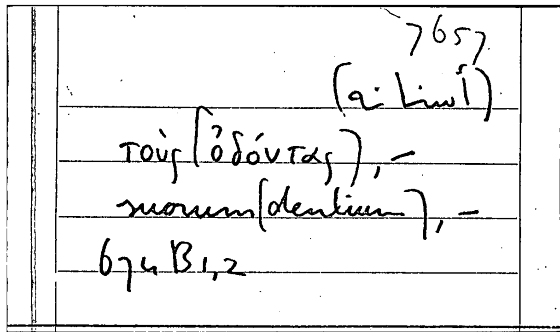 7657
τοὺς (ὀδόντας), –
suorum (dentium), –
674 B 1,2